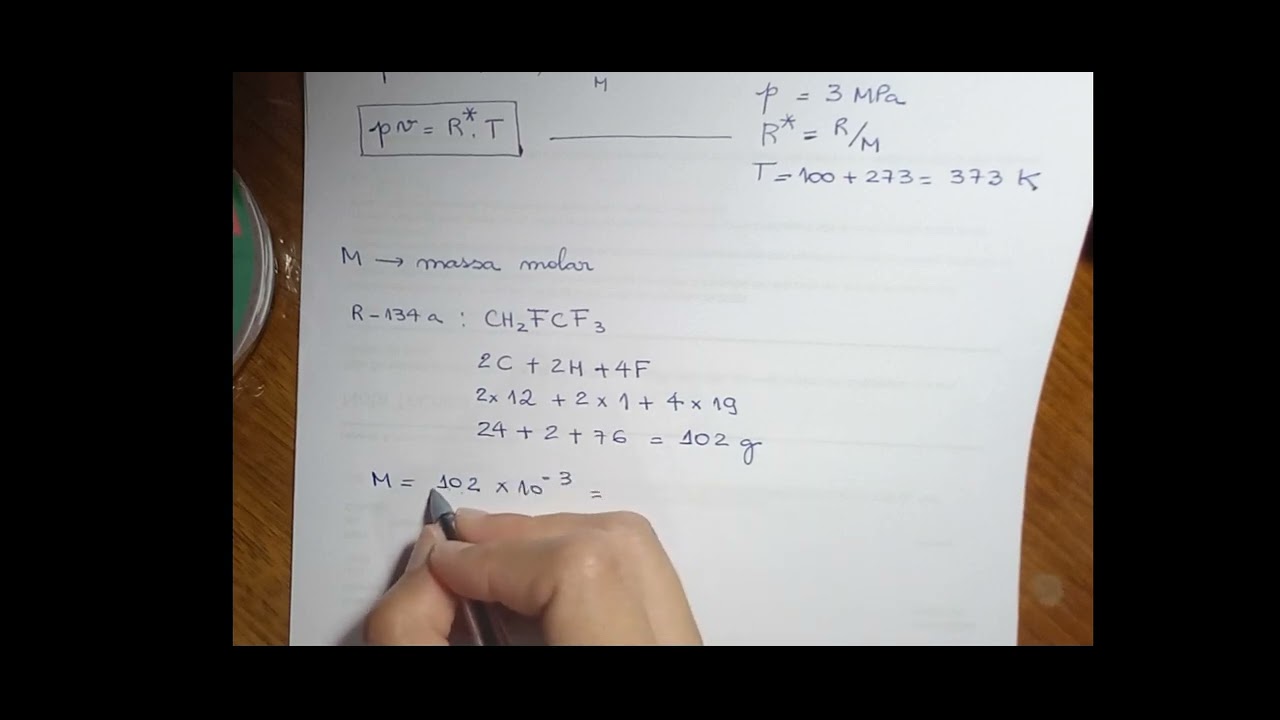 M
p = 3 MPa
pv = R*. T
R* = R/M
T = 100 + 273 = 373 K
M → massa molar
R-134a : CH₂FCF₃
2C + 2H + 4F
2 x 12 + 2 x 1 + 4 x 19
24 + 2 + 76 = 102 g
M = 102 x 10⁻³ =